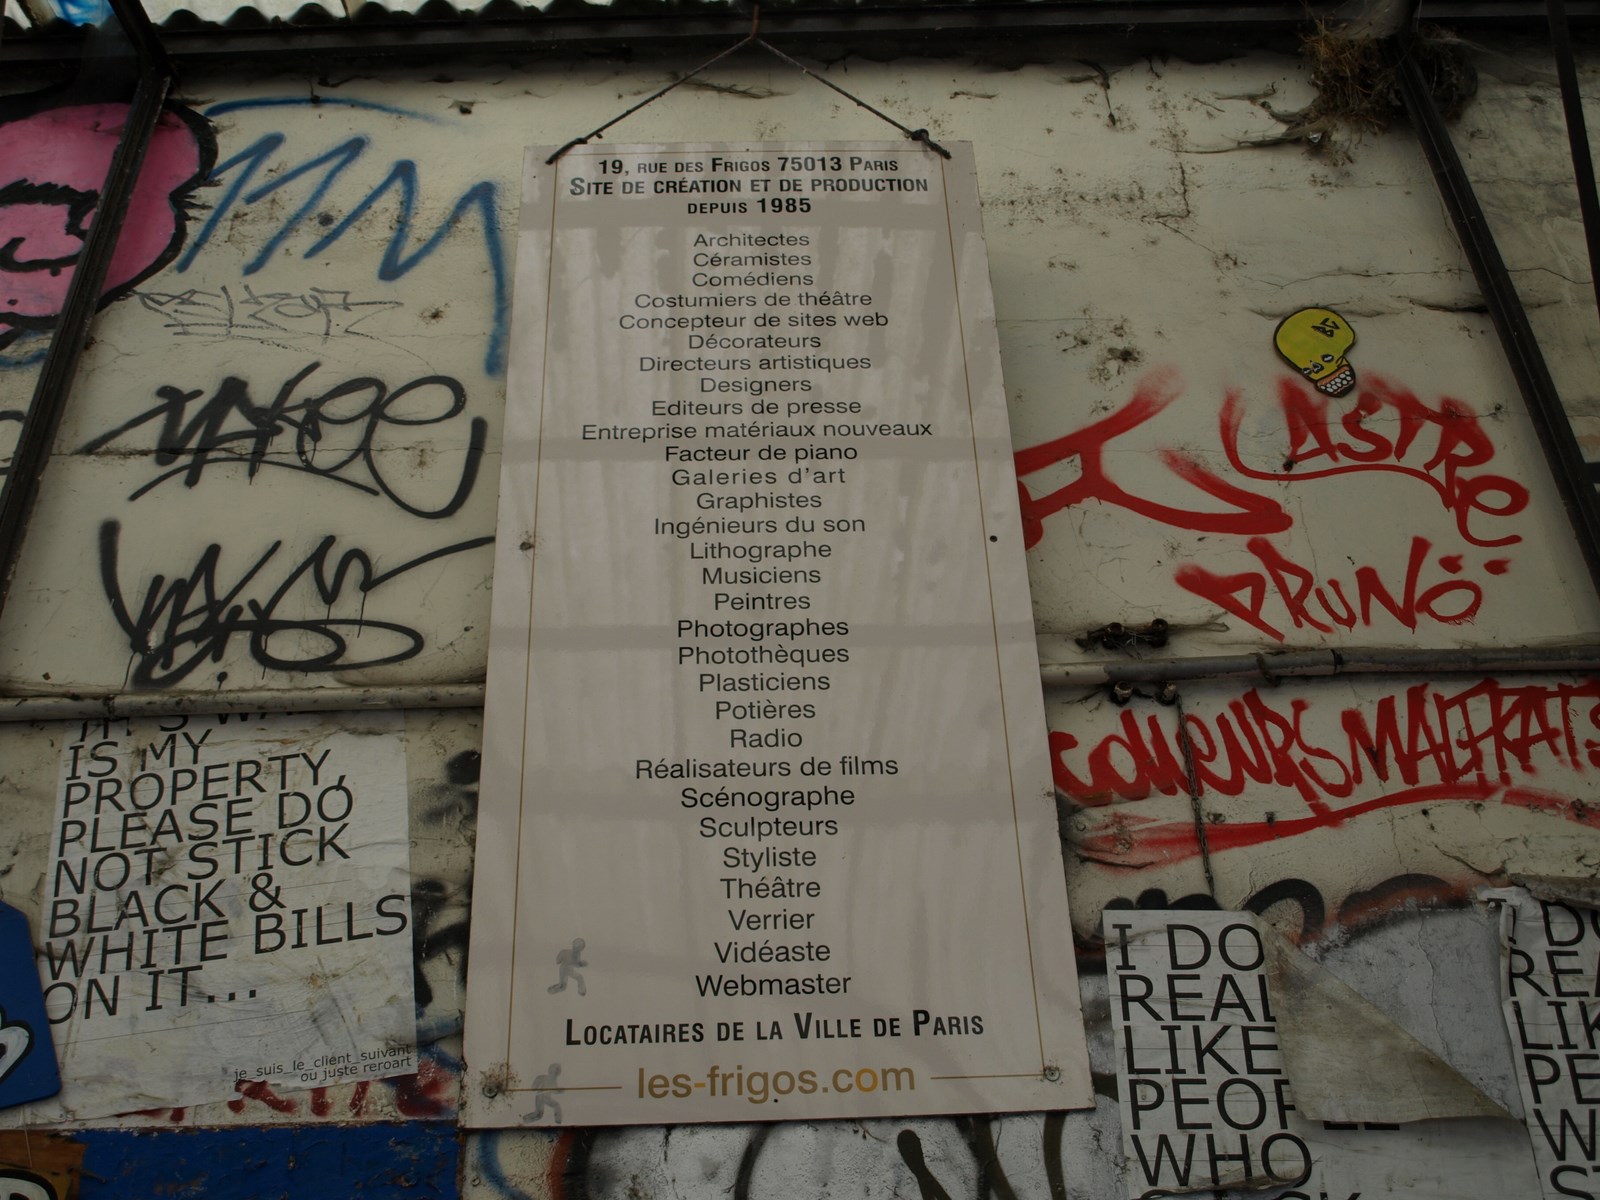 19, RUE DES FRIGOS 75013 PARIS
SITE DE CRÉATION ET DE PRODUCTION
DEPUIS 1985
Architectes
Céramistes
Comédiens
Costumiers de théâtre
Concepteur de sites web
Décorateurs
Directeurs artistiques
Designers
Editeurs de presse
Entreprise matériaux nouveaux
Facteur de piano
Galeries d'art
Graphistes
Ingénieurs du son
Lithographe
Musiciens
Peintres
Photographes
Photothèques
Plasticiens
Potières
Radio
Réalisateurs de films
Scénographe
Sculpteurs
Styliste
Théâtre
Verrier
Vidéaste
Webmaster
LOCATAIRES DE LA VILLE DE PARIS
les-frigos.com
IS MY
PROPERTY,
PLEASE DO
NOT STICK
BLACK &
WHITE BILLS
ON IT...
je_suis_le_client_suivant
ou juste reroart
LASTRE
PRUNO
I DO
REAL
LIKE
PEOP
WHO
I DO
RE
LIK
PE
W